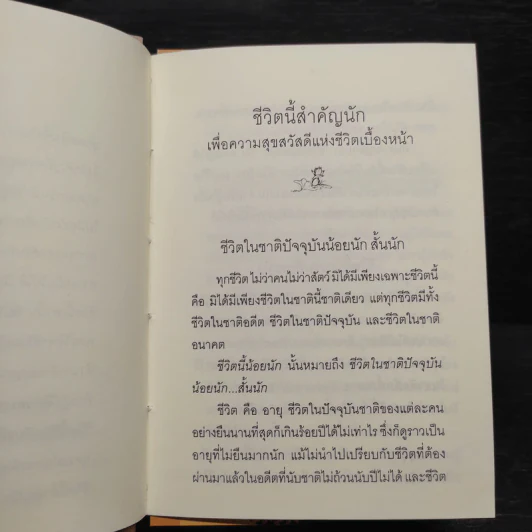 ชีวิตนี้สำคัญนัก
เพื่อความสุขสวัสดีแห่งชีวิตเบื้องหน้า
ชีวิตในชาติปัจจุบันน้อยนัก สั้นนัก
ทุกชีวิต ไม่ว่าคนไม่ว่าสัตว์ มิได้มีเพียงเฉพาะชีวิตนี้
คือ มิได้มีเพียงชีวิตในชาตินี้ชาติเดียว แต่ทุกชีวิตมีทั้ง
ชีวิตในชาติอดีต ชีวิตในชาติปัจจุบัน และชีวิตในชาติ
อนาคต
ชีวิตนี้น้อยนัก นั้นหมายถึง ชีวิตในชาติปัจจุบัน
น้อยนัก...สั้นนัก
ชีวิต คือ อายุ ชีวิตในปัจจุบันชาติของแต่ละคน
อย่างยืนนานที่สุดก็เกินร้อยปีได้ไม่เท่าไร ซึ่งก็ดูราวเป็น
อายุที่ไม่ยืนมากนัก แม้ไม่นำไปเปรียบกับชีวิตที่ต้อง
ผ่านมาแล้วในอดีตที่นับชาติไม่ถ้วนนับปีไม่ได้ และชีวิต